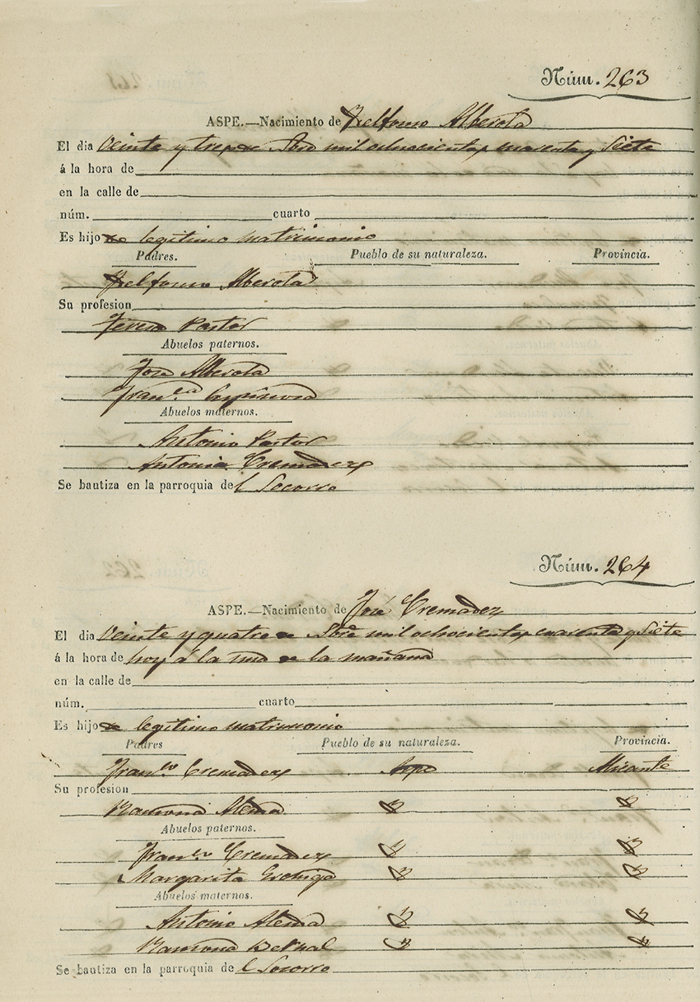 Núm. 263
ASPE.—Nacimiento de Ildefonso Alberola
El dia veinte y tres de mil ochocientos cuarenta y siete
á la hora de
en la calle de
núm. cuarto
Es hijo de legitimo matrimonio
Padres. Pueblo de su naturaleza. Provincia.
Ildefonso Alberola
Su profesion
Teresa Pastor
Abuelos paternos.
Jose Alberola
Fran.ca
Abuelos maternos.
Antonio Pastor
Antonia Cremades
Se bautiza en la parroquia del Socorro
Núm. 264
ASPE.—Nacimiento de José Cremades
El dia veinte y quatro de mil ochocientos cuarenta y siete
á la hora de hoy á la una de la mañana
en la calle de
núm. cuarto
Es hijo de legitimo matrimonio
Padres Pueblo de su naturaleza. Provincia.
Fran.co Cremades Aspe Alicante
Su profesion
Ramona Alenda
Abuelos paternos.
Fran.co Cremades
Margarita
Abuelos maternos.
Antonio Alenda
Ramona
Se bautiza en la parroquia del Socorro